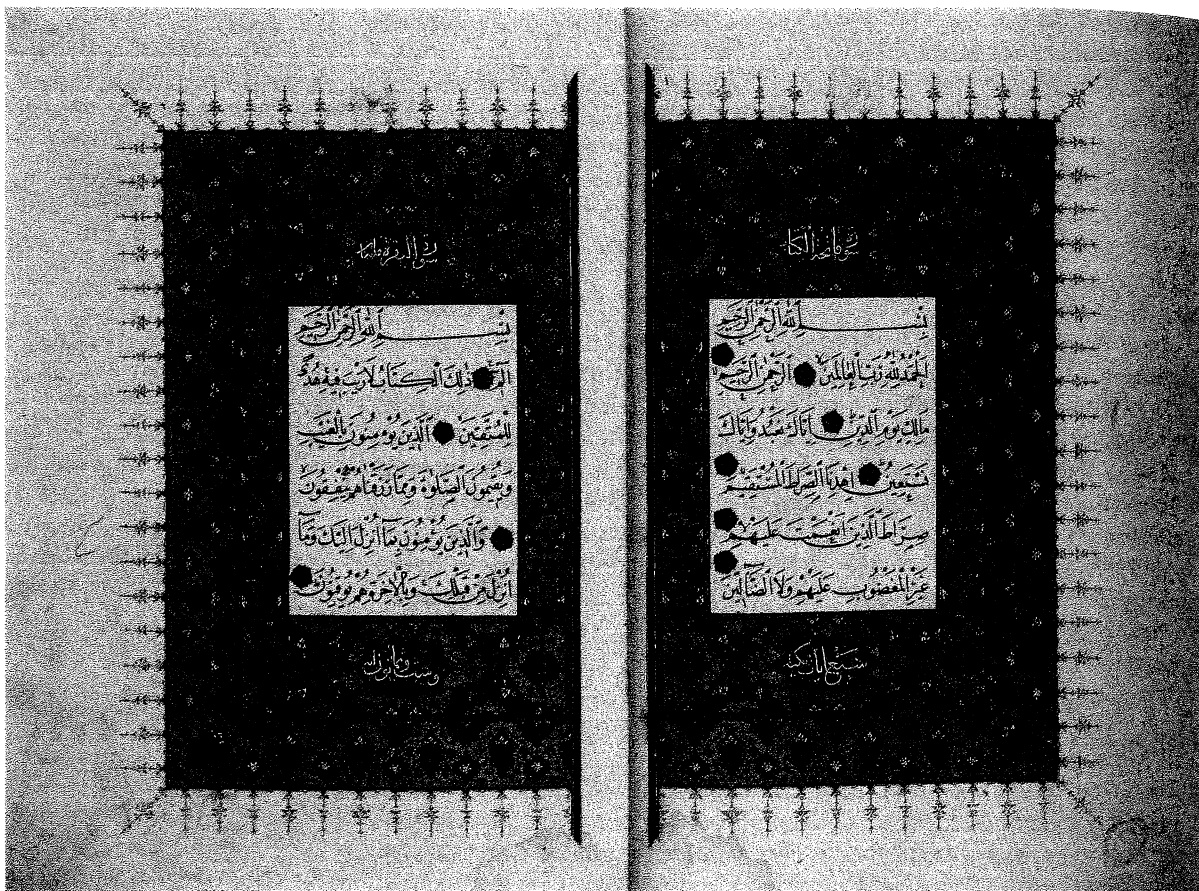 سورة فاتحة الكتاب
بِسْمِ ٱللَّهِ ٱلرَّحْمَٰنِ ٱلرَّحِيمِ
ٱلْحَمْدُ لِلَّهِ رَبِّ ٱلْعَالَمِينَ ٱلرَّحْمَٰنِ ٱلرَّحِيمِ
مَالِكِ يَوْمِ ٱلدِّينِ إِيَّاكَ نَعْبُدُ وَإِيَّاكَ
نَسْتَعِينُ ٱهْدِنَا ٱلصِّرَاطَ ٱلْمُسْتَقِيمَ
صِرَاطَ ٱلَّذِينَ أَنْعَمْتَ عَلَيْهِمْ
غَيْرِ ٱلْمَغْضُوبِ عَلَيْهِمْ وَلَا ٱلضَّآلِّينَ
سبع آيات مكية
سورة البقرة مائتا
بِسْمِ ٱللَّهِ ٱلرَّحْمَٰنِ ٱلرَّحِيمِ
الٓمٓ ذَٰلِكَ ٱلْكِتَابُ لَا رَيْبَ فِيهِ هُدًى
لِلْمُتَّقِينَ ٱلَّذِينَ يُؤْمِنُونَ بِٱلْغَيْبِ
وَيُقِيمُونَ ٱلصَّلَوٰةَ وَمِمَّا رَزَقْنَاهُمْ يُنْفِقُونَ
وَٱلَّذِينَ يُؤْمِنُونَ بِمَآ أُنْزِلَ إِلَيْكَ وَمَآ
أُنْزِلَ مِنْ قَبْلِكَ وَبِٱلْآخِرَةِ هُمْ يُوقِنُونَ
وست وثمانون آية